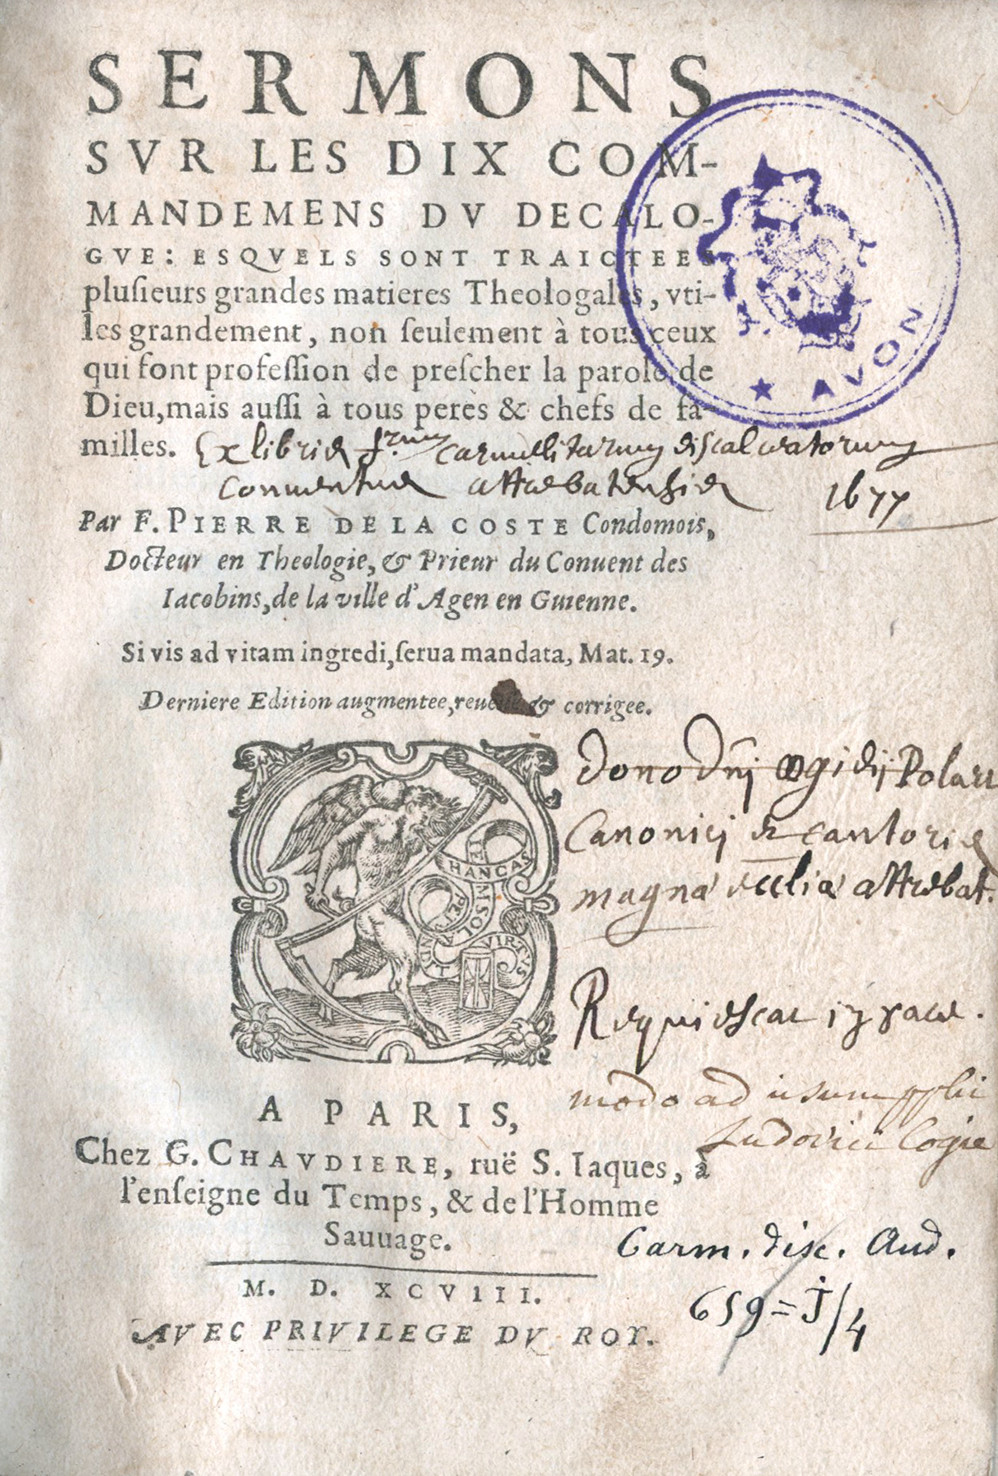 SERMONS
SVR LES DIX COM-
MANDEMENS DV DECALO-
GVE: ESQVELS SONT TRAICTEES
plusieurs grandes matieres Theologales, vti-
les grandement, non seulement à tous ceux
qui font profession de prescher la parole de
Dieu, mais aussi à tous peres & chefs de fa-
milles. Ex libris f.rum carmelitarum discalceatorum
Conuentus attrebatensis 1677
Par F. PIERRE DE LA COSTE Condomois,
Docteur en Theologie, & Prieur du Conuent des
Iacobins, de la ville d'Agen en Guienne.
Si vis ad vitam ingredi, serua mandata, Mat. 19.
Derniere Edition augmentee, reueuë & corrigee.
HANC ACIEM SOLA RETUNDIT VIRTVS
dono Dni ægidij
Canonici & cantoris
magnæ eccliæ attrebat.
Requiescat in pace.
modo ad usum
Ludovici
A PARIS,
Chez G. CHAVDIERE, ruë S. Iaques, à
l'enseigne du Temps, & de l'Homme
Sauuage.
Carm. disc. Aud.
M. D. XCVIII.
659 = J/4
AVEC PRIVILEGE DV ROY.
★ AVON